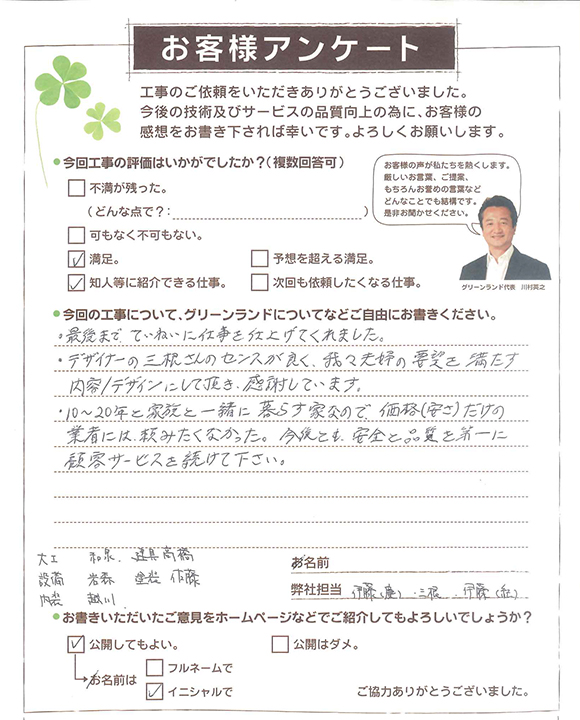 お客様アンケート
工事のご依頼をいただきありがとうございました。
今後の技術及びサービスの品質向上の為に、お客様の
感想をお書き下されば幸いです。よろしくお願いします。
今回工事の評価はいかがでしたか？（複数回答可）
不満が残った。
（どんな点で？：　）
可もなく不可もない。
満足。
予想を超える満足。
知人等に紹介できる仕事。
次回も依頼したくなる仕事。
お客様の声が私たちを熱くします。
厳しいお言葉、ご提案、
もちろんお誉めの言葉など
どんなことでも結構です。
是非お聞かせください。
グリーンランド代表　川村真之
今回の工事について、グリーンランドについてなどご自由にお書きください。
・最後まで、ていねいに仕事を仕上げてくれました。
・デザイナーの三根さんのセンスが良く、我々夫婦の要望を満たす
内容/デザインにして頂き、感謝しています。
・10〜20年と家族と一緒に暮らす家なので、価格(安さ)だけの
業者には、頼みたくなかった。今後とも、安全と品質を第一に
顧客サービスを続けて下さい。
大工　和泉　建具高橋
設備　岩森　塗装　佐藤
内装　越川
お名前
弊社担当　伊藤　三根　伊藤
お書きいただいたご意見をホームページなどでご紹介してもよろしいでしょうか？
公開してもよい。
公開はダメ。
お名前は
フルネームで
イニシャルで
ご協力ありがとうございました。